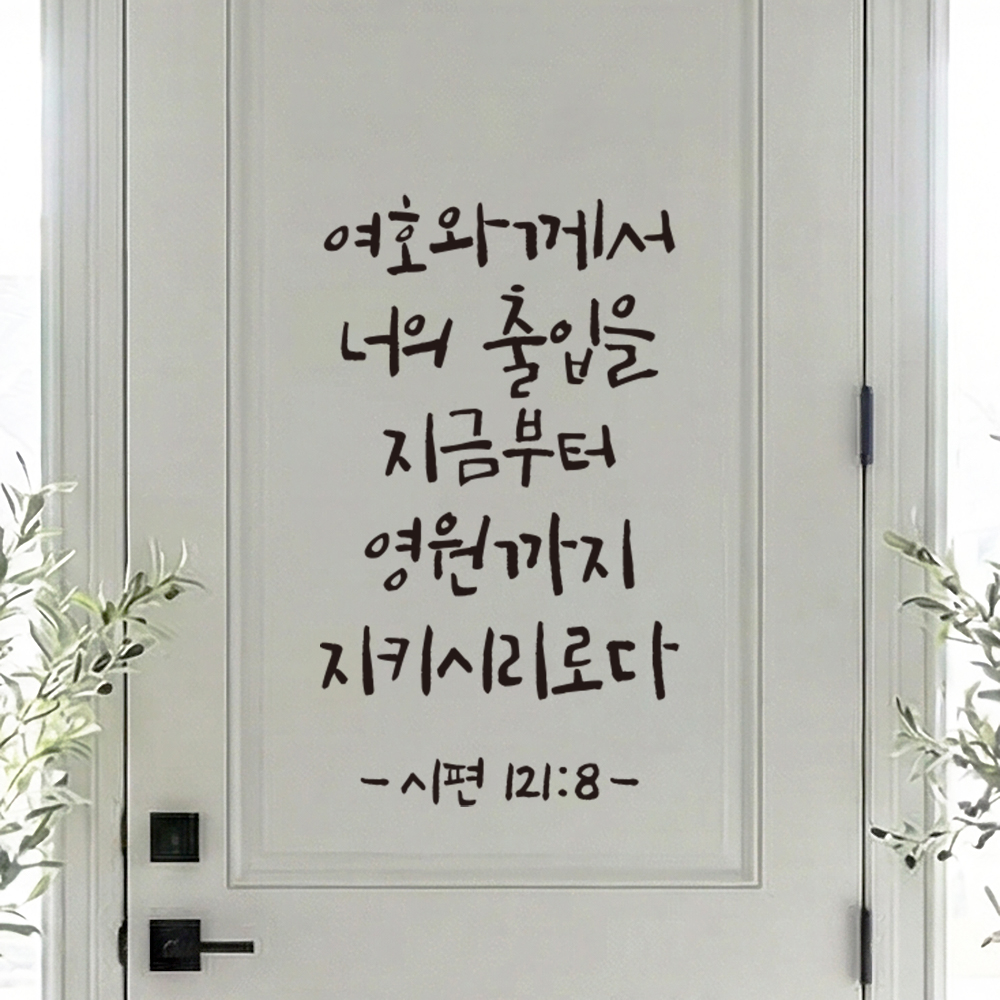 여호와께서
너의 출입을
지금부터
영원까지
지키시리로다
- 시편 121:8 -